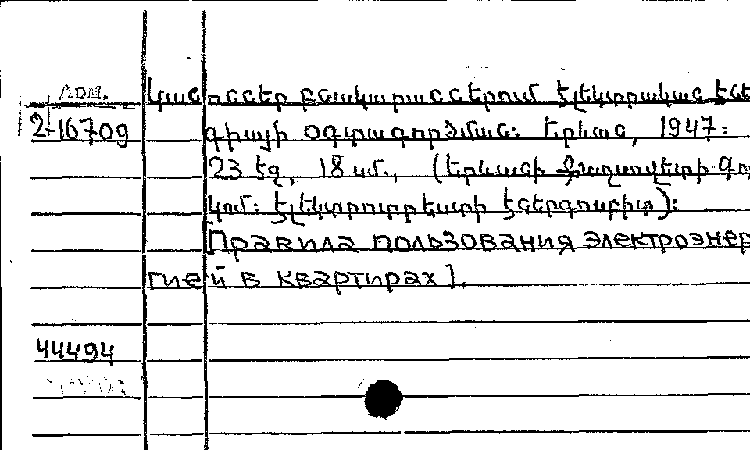 Կանոններ բնակարաններում էլեկտրական էնե
2-16709 գիայի օգտագործման: Երևան, 1947:
23 էջ, 18 սմ., (Երևանի Քաղսովետի Գո
կոմ: էլեկտրո էներգոսբիտ):
[Правила пользования электроэнер
гией в квартирах].
44494